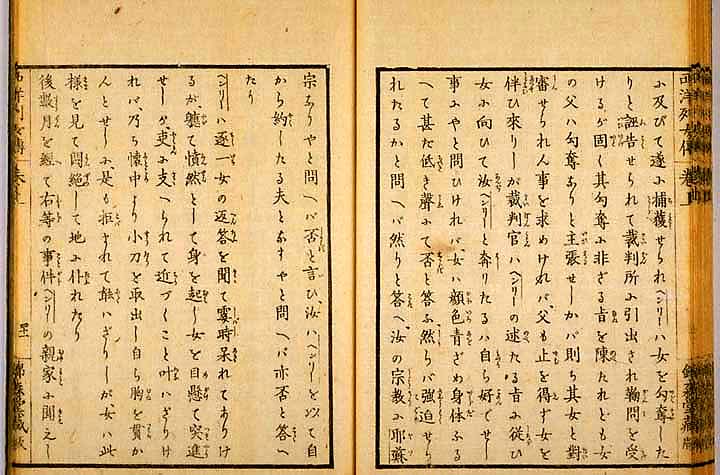 西洋列女傳 巻上
に及びて遂に捕獲せられヘンリーハ女を勾奪した
りと誣告せられて裁判所に引出され鞫問を受
けるが固く其勾奪に非ざる旨を陳たれども女
の父ハ勾奪なりと主張せしかバ則ち其女と對
審せられん事を求めけれバ父も止を得ず女を
伴ひ來りしが裁判官ハヘンリーの述たる旨に従ひ
女に向ひて汝ヘンリーと奔りたるハ自ら好でせし
事にやと問ひけれバ女ハ顔色青ざめ身体ふる
へて甚だ低き聲にて否と答ふ然らバ強迫せら
れたるかと問へバ然りと答へ汝の宗教ハ耶蘇
宗なりやと問へバ否と言ひ汝ハヘンリーを以て自
から約したる夫となすやと問へバ亦否と答へ
たり
ヘンリーハ逐一女の返答を聞て霎時呆れてありけ
るが軈て憤然として身を起し女を目懸て突進
せしが吏に支へられて近づくこと叶ハざりけ
れバ乃ち懐中より小刀を取出し自ら胸を貫か
んとせしに是も拒されて能ハざりしが女ハ此
様を見て悶絶して地に仆れたり
後數月を經て右等の事件ヘンリーの親家に聞えし